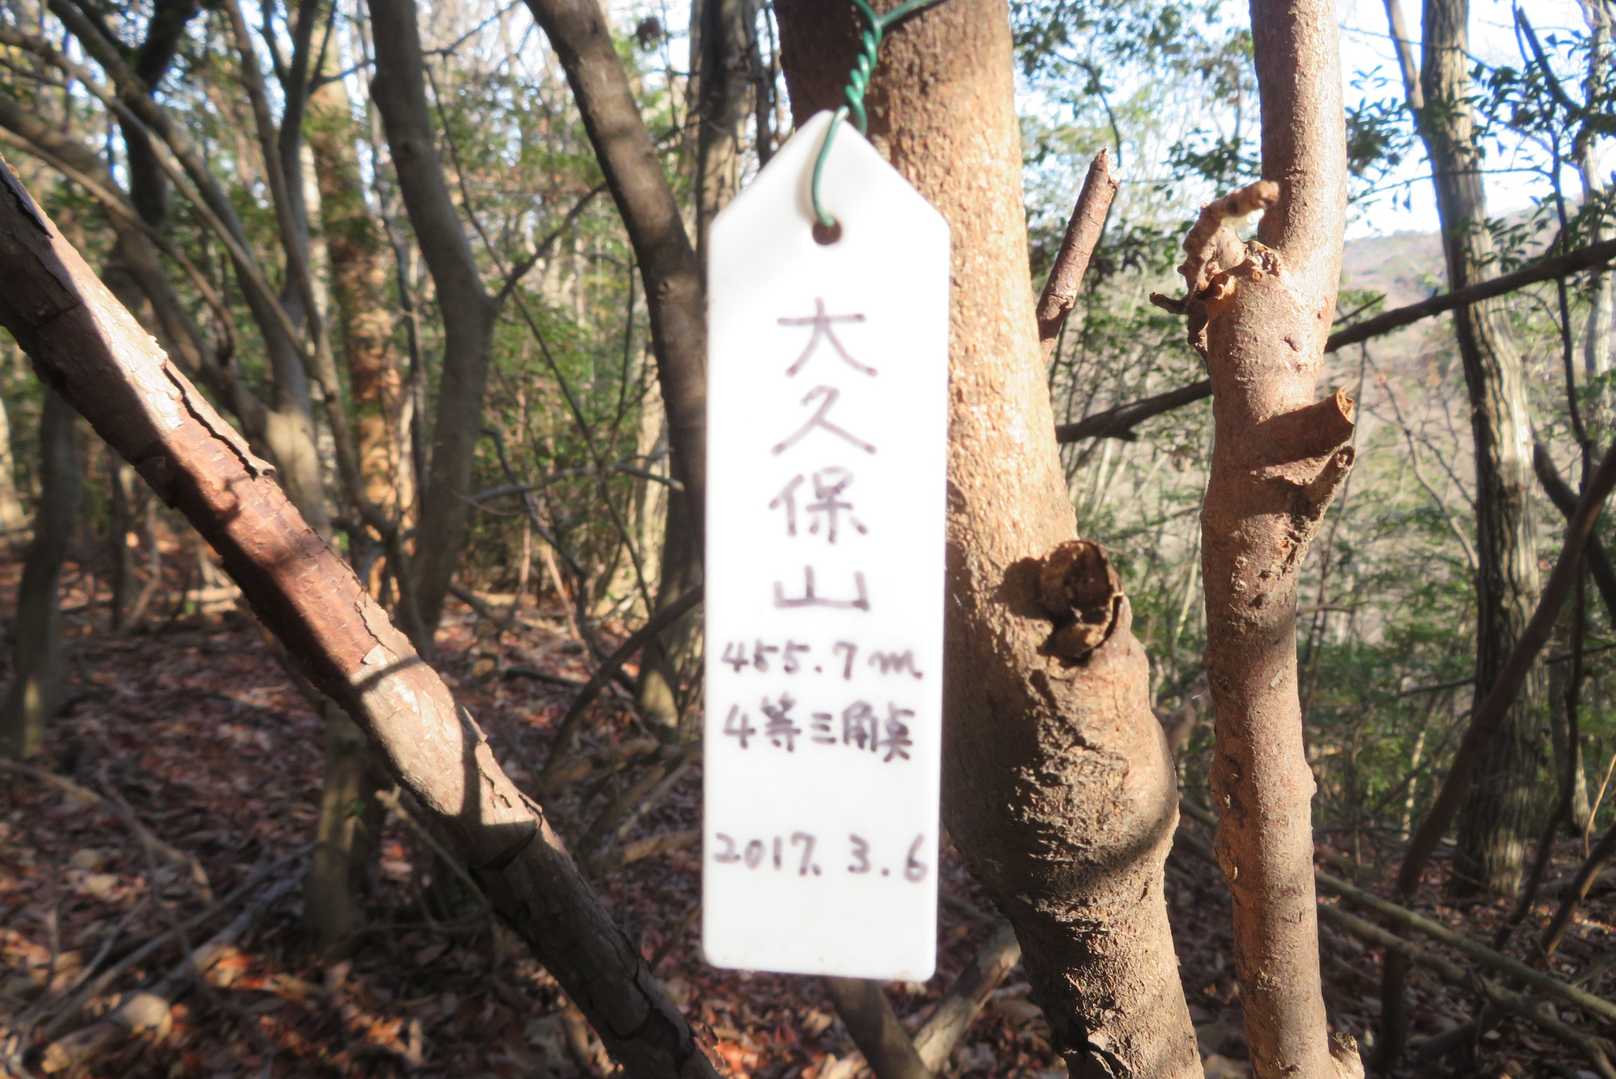 大久保山
455.7m
4等三角点
2017.3.6